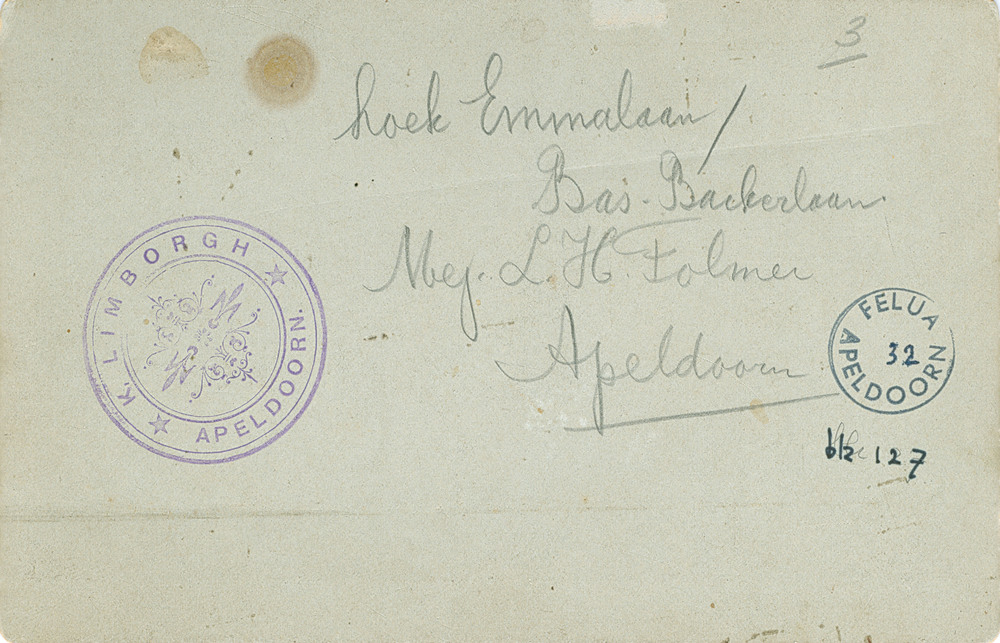 3
hoek Emmalaan/
Bas. Backerlaan
Mej. L. H. Folmer
Apeldoorn
K. LIMBORGH
APELDOORN.
FELUA
32
APELDOORN
blz 127